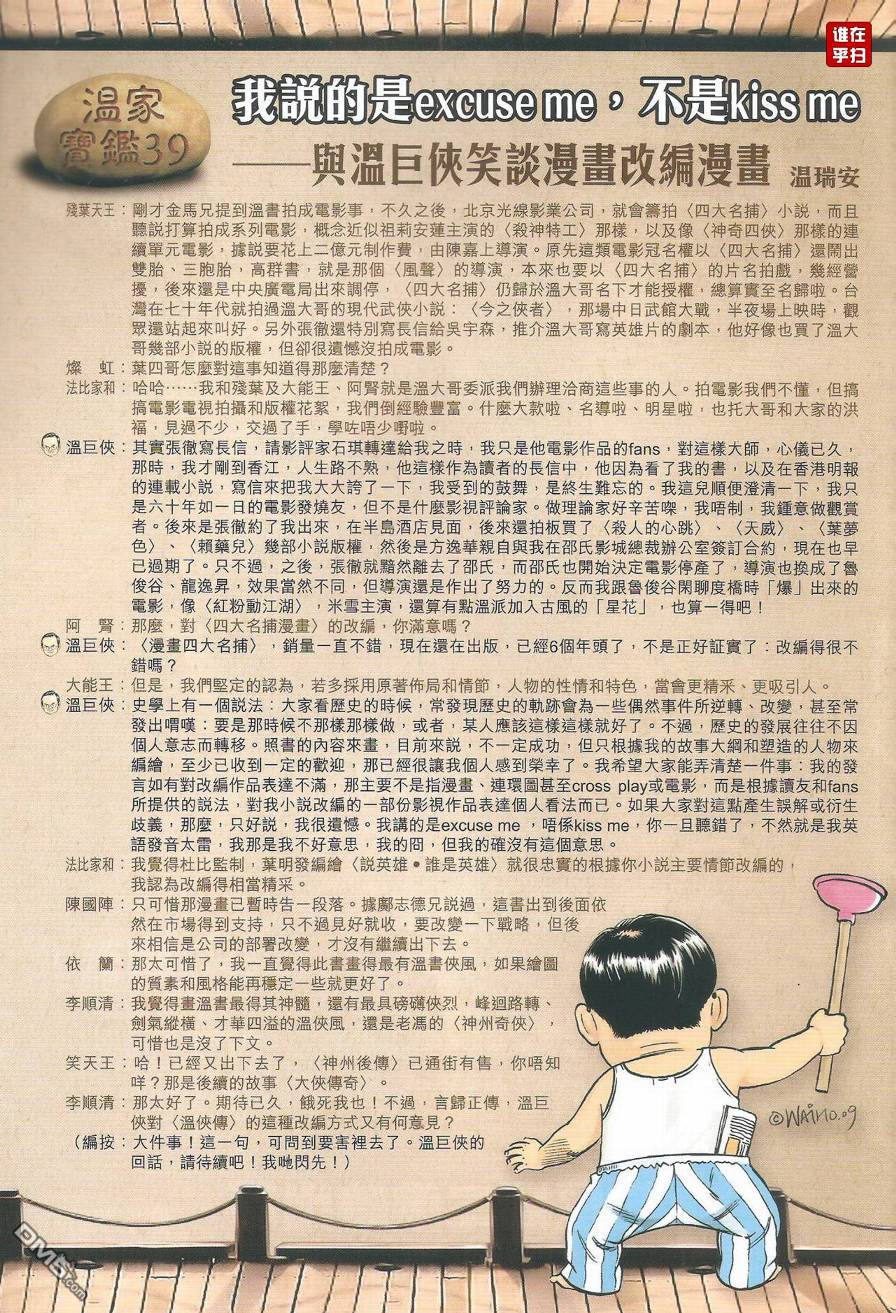 谁在
乎扫
温家
寶鑑39
我説的是excuse me，不是kiss me
——與溫巨俠笑談漫畫改編漫畫 温瑞安
殘葉天王：剛才金馬兄提到溫書拍成電影事，不久之後，北京光線影業公司，就會籌拍〈四大名捕〉小説，而且
聽説打算拍成系列電影，概念近似祖莉安蓮主演的〈殺神特工〉那樣，以及像〈神奇四俠〉那樣的連
續單元電影，據説要花上二億元制作費，由陳嘉上導演。原先這類電影冠名權以〈四大名捕〉還鬧出
雙胎、三胞胎，高群書，就是那個〈風聲〉的導演，本來也要以〈四大名捕〉的片名拍戲，幾經營
擾，後來還是中央廣電局出來調停，〈四大名捕〉仍歸於溫大哥名下才能授權，總算實至名歸啦。台
灣在七十年代就拍過溫大哥的現代武俠小説：〈今之俠者〉，那場中日武館大戰，半夜場上映時，觀
眾還站起來叫好。另外張徹還特別寫長信給吳宇森，推介溫大哥寫英雄片的劇本，他好像也買了溫大
哥幾部小説的版權，但卻很遺憾沒拍成電影。
燦　虹：葉四哥怎麼對這事知道得那麼清楚？
法比家和：哈哈……我和殘葉及大能王、阿腎就是溫大哥委派我們辦理洽商這些事的人。拍電影我們不懂，但搞
搞電影電視拍攝和版權花絮，我們倒經驗豐富。什麼大款啦、名導啦、明星啦，也托大哥和大家的洪
福，見過不少，交過了手，學咗唔少嘢啦。
溫巨俠：其實張徹寫長信，請影評家石琪轉達給我之時，我只是他電影作品的fans，對這樣大師，心儀已久，
那時，我才剛到香江，人生路不熟，他這樣作為讀者的長信中，他因為看了我的書，以及在香港明報
的連載小説，寫信來把我大大誇了一下，我受到的鼓舞，是終生難忘的。我這兒順便澄清一下，我只
是六十年如一日的電影發燒友，但不是什麼影視評論家。做理論家好辛苦㗎，我唔制，我鍾意做觀賞
者。後來是張徹約了我出來，在半島酒店見面，後來還拍板買了〈殺人的心跳〉、〈天威〉、〈葉夢
色〉、〈賴藥兒〉幾部小説版權，然後是方逸華親自與我在邵氏影城總裁辦公室簽訂合約，現在也早
已過期了。只不過，之後，張徹就黯然離去了邵氏，而邵氏也開始決定電影停產了，導演也換成了魯
俊谷、龍逸昇，效果當然不同，但導演還是作出了努力的。反而我跟魯俊谷閑聊度橋時「爆」出來的
電影，像〈紅粉動江湖〉，米雪主演，還算有點溫派加入古風的「星花」，也算一得吧！
阿　腎：那麼，對〈四大名捕漫畫〉的改編，你滿意嗎？
溫巨俠：〈漫畫四大名捕〉，銷量一直不錯，現在還在出版，已經6個年頭了，不是正好証實了：改編得很不
錯嗎？
大能王：但是，我們堅定的認為，若多採用原著佈局和情節，人物的性情和特色，當會更精釆、更吸引人。
溫巨俠：史學上有一個説法：大家看歷史的時候，常發現歷史的軌跡會為一些偶然事件所逆轉、改變，甚至常
發出喟嘆：要是那時候不那樣那樣做，或者，某人應該這樣這樣就好了。不過，歷史的發展往往不因
個人意志而轉移。照書的內容來畫，目前來説，不一定成功，但只根據我的故事大綱和塑造的人物來
編繪，至少已收到一定的歡迎，那已經很讓我個人感到榮幸了。我希望大家能弄清楚一件事：我的發
言如有對改編作品表達不滿，那主要不是指漫畫、連環圖甚至cross play或電影，而是根據讀友和fans
所提供的説法，對我小説改編的一部份影視作品表達個人看法而已。如果大家對這點產生誤解或衍生
歧義，那麼，只好説，我很遺憾。我講的是excuse me ，唔係kiss me，你一旦聽錯了，不然就是我英
語發音太雷，我那是我不好意思，我的囧，但我的確沒有這個意思。
法比家和：我覺得杜比監制，葉明發編繪〈説英雄●誰是英雄〉就很忠實的根據你小説主要情節改編的，
我認為改編得相當精采。
陳國陣：只可惜那漫畫已暫時告一段落。據鄺志德兄説過，這書出到後面依
然在市場得到支持，只不過見好就收，要改變一下戰略，但後
來相信是公司的部署改變，才沒有繼續出下去。
依　蘭：那太可惜了，我一直覺得此書畫得最有溫書俠風，如果繪圖
的質素和風格能再穩定一些就更好了。
李順清：我覺得畫溫書最得其神髓，還有最具磅礴俠烈，峰迴路轉、
劍氣縱橫、才華四溢的溫俠風，還是老馮的〈神州奇俠〉，
可惜也是沒了下文。
笑天王：哈！已經又出下去了，〈神州後傳〉已通街有售，你唔知
咩？那是後續的故事〈大俠傳奇〉。
李順清：那太好了。期待已久，餓死我也！不過，言歸正傳，溫巨
俠對〈溫俠傳〉的這種改編方式又有何意見？
（編按：大件事！這一句，可問到要害裡去了。溫巨俠的
回話，請待續吧！我哋閃先！）
©WAIHO.09
DM5.com